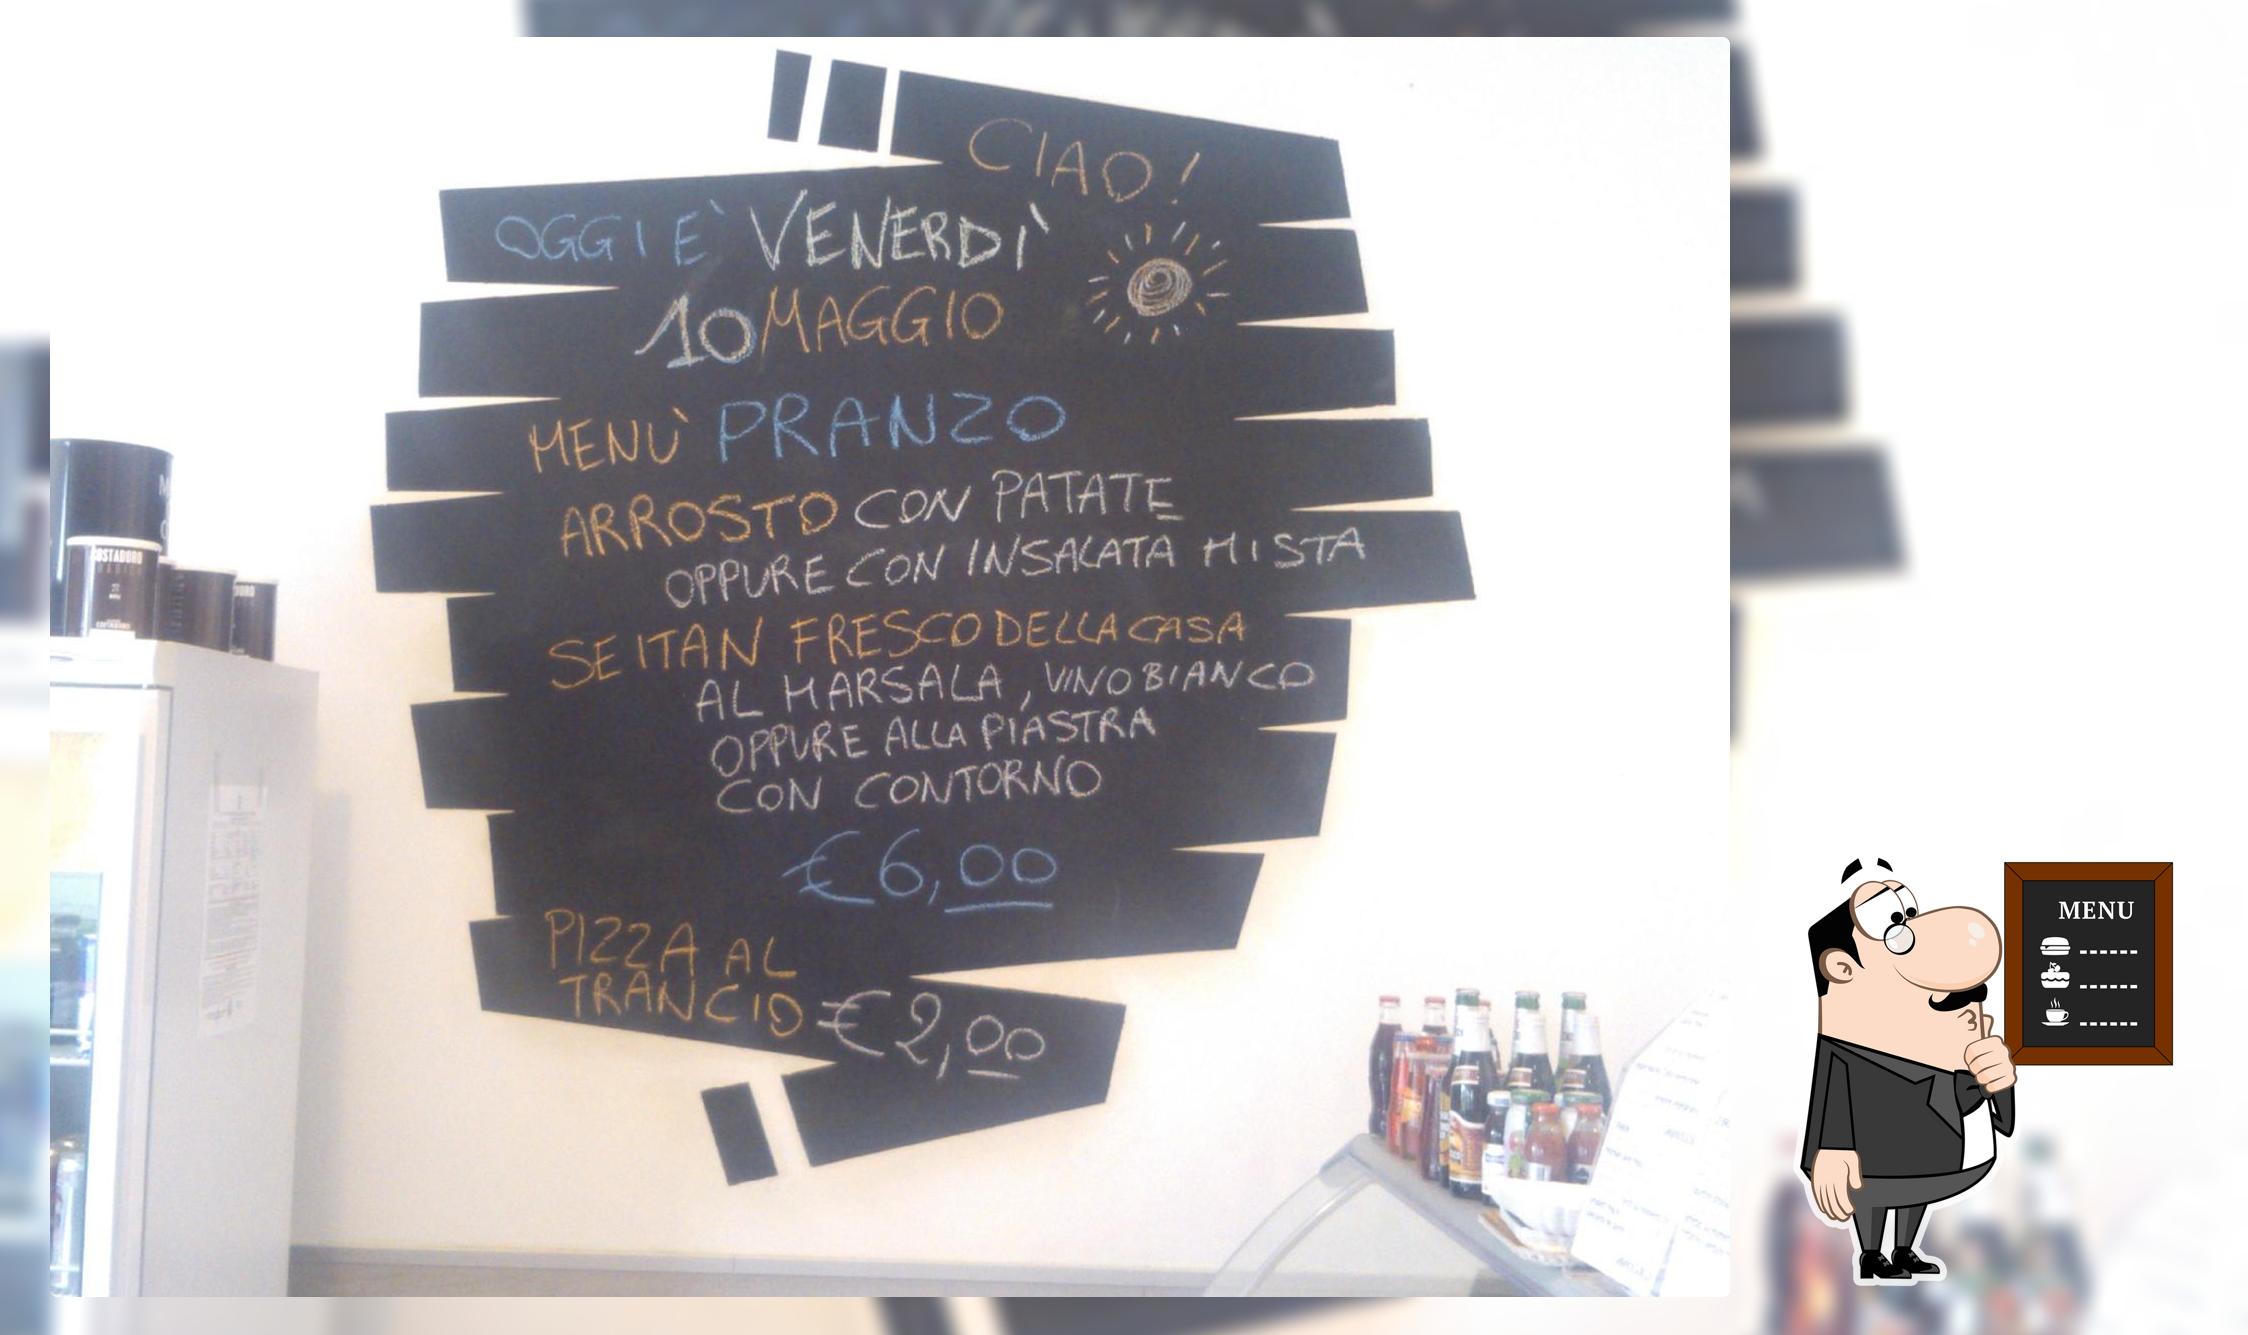 CIAO!
OGGI E' VENERDI'
10 MAGGIO
MENU' PRANZO
ARROSTO CON PATATE
OPPURE CON INSALATA MISTA
SEITAN FRESCO DELLA CASA
AL MARSALA, VINO BIANCO
OPPURE ALLA PIASTRA
CON CONTORNO
€6,00
PIZZA AL
TRANCIO €2,00
COSTADORO
MENU